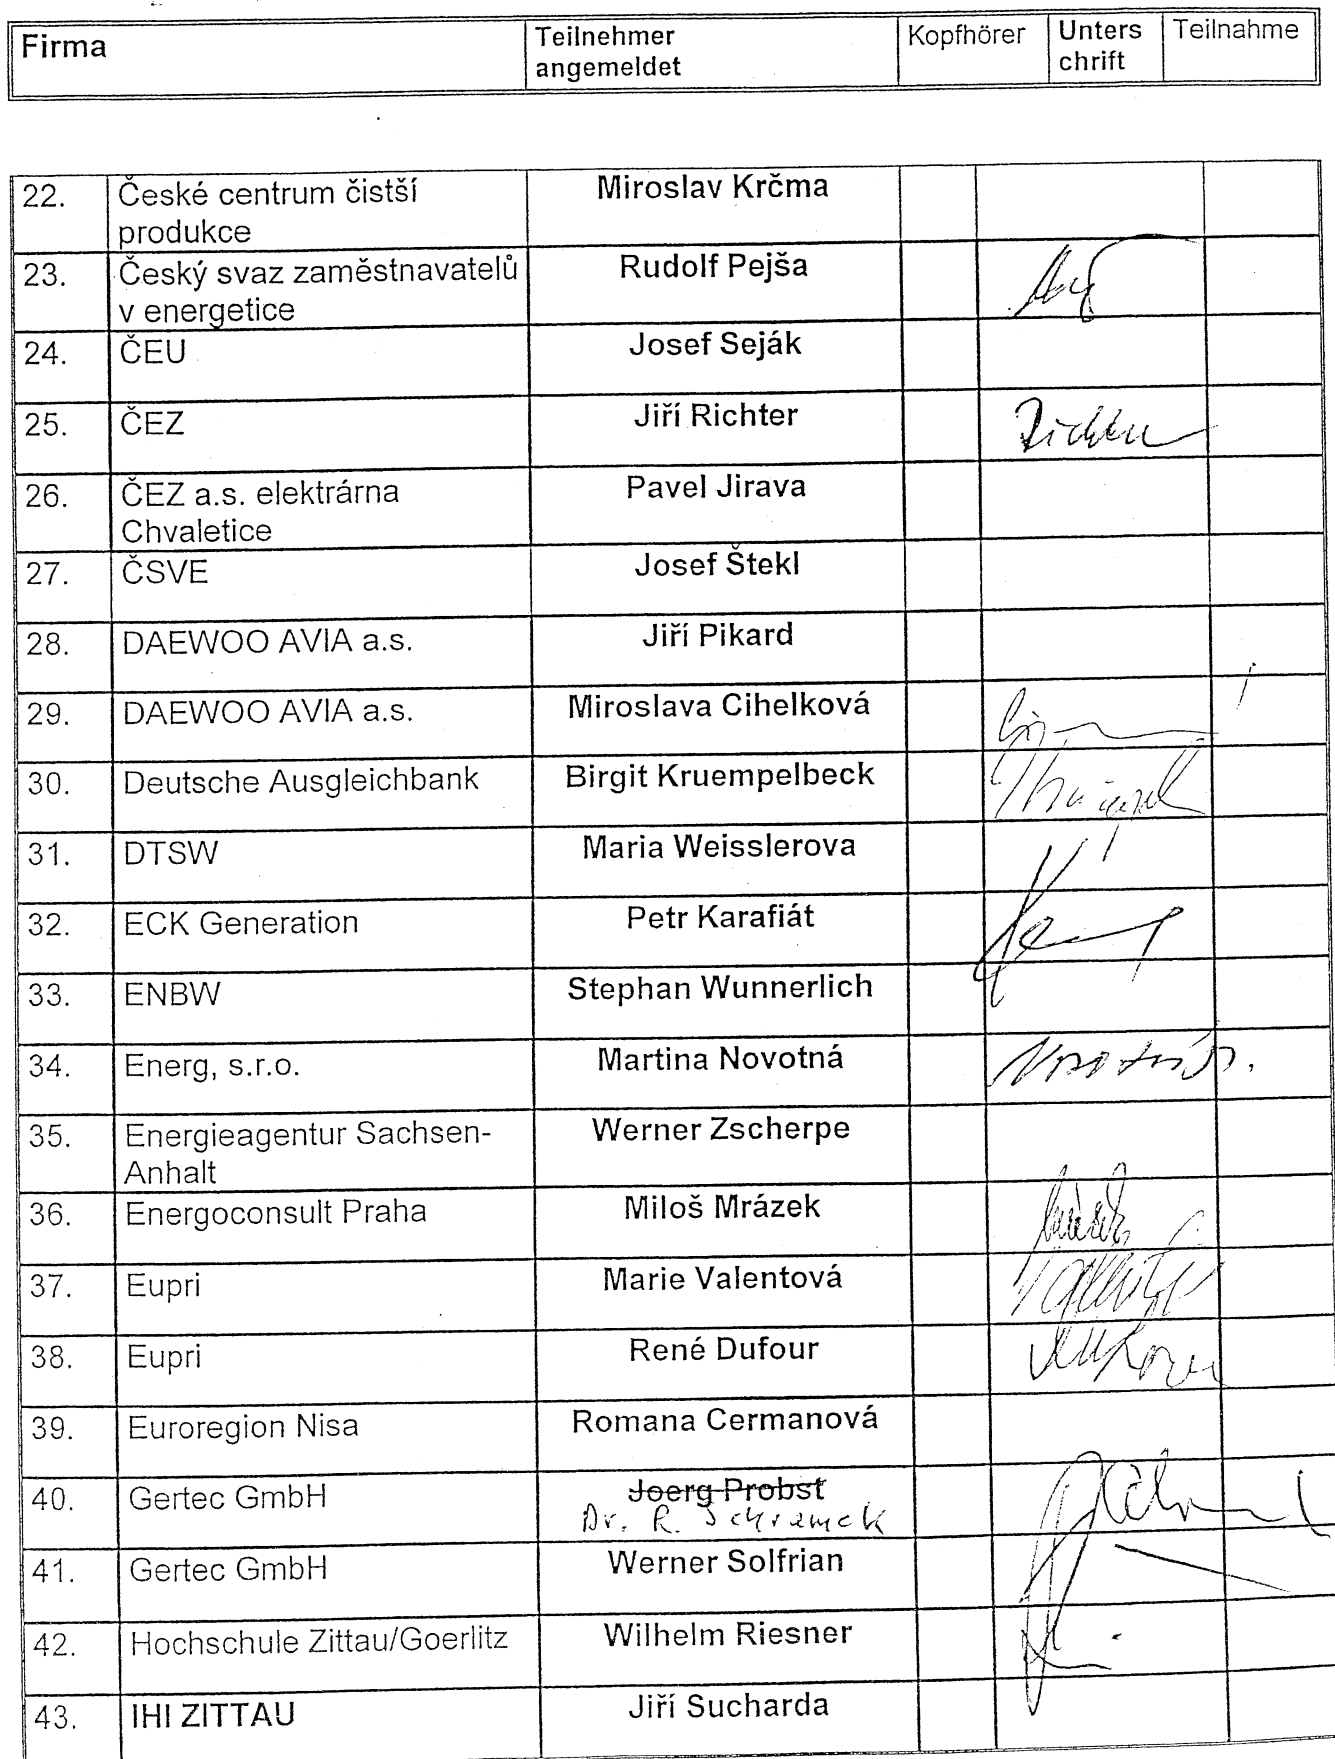 Firma Teilnehmer Kopfhörer Unters Teilnahme
angemeldet chrift
22. České centrum čistší Miroslav Krčma
produkce
23. Český svaz zaměstnavatelů Rudolf Pejša
v energetice
24. ČEU Josef Seják
25. ČEZ Jiří Richter Richter
26. ČEZ a.s. elektrárna Pavel Jirava
Chvaletice
27. ČSVE Josef Štekl
28. DAEWOO AVIA a.s. Jiří Pikard
29. DAEWOO AVIA a.s. Miroslava Cihelková
30. Deutsche Ausgleichbank Birgit Kruempelbeck
31. DTSW Maria Weisslerova
32. ECK Generation Petr Karafiát
33. ENBW Stephan Wunnerlich
34. Energ, s.r.o. Martina Novotná Novotná
35. Energieagentur Sachsen- Werner Zscherpe
Anhalt
36. Energoconsult Praha Miloš Mrázek
37. Eupri Marie Valentová
38. Eupri René Dufour
39. Euroregion Nisa Romana Cermanová
40. Gertec GmbH Joerg Probst
Dr. R. Schramek
41. Gertec GmbH Werner Solfrian
42. Hochschule Zittau/Goerlitz Wilhelm Riesner
43. IHI ZITTAU Jiří Sucharda